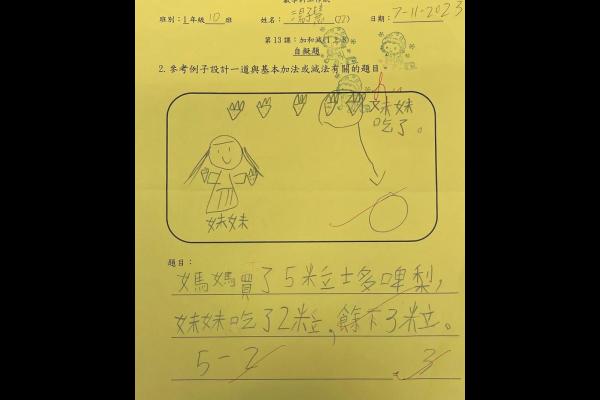 班別：1年級10班 姓名：湯子慧(22) 日期：7-11-2023
第13課：加和減(1至8)
自擬題
2. 參考例子設計一道與基本加法或減法有關的題目。
妹妹
吃了。
妹妹
題目：
媽媽買了5粒士多啤梨，
妹妹吃了2粒，餘下3粒。
5-2 = 3